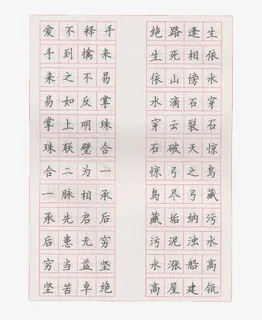 爱不释手
手到擒来
来之不易
易如反掌
掌上明珠
珠联璧合
合二为一
一脉相承
承先启后
后患无穷
穷当益坚
坚苦卓绝
绝路逢生
生死相依
依山傍水
水滴石穿
穿云裂石
石破天惊
惊弓之鸟
鸟尽弓藏
藏垢纳污
污泥浊水
水涨船高
高屋建瓴